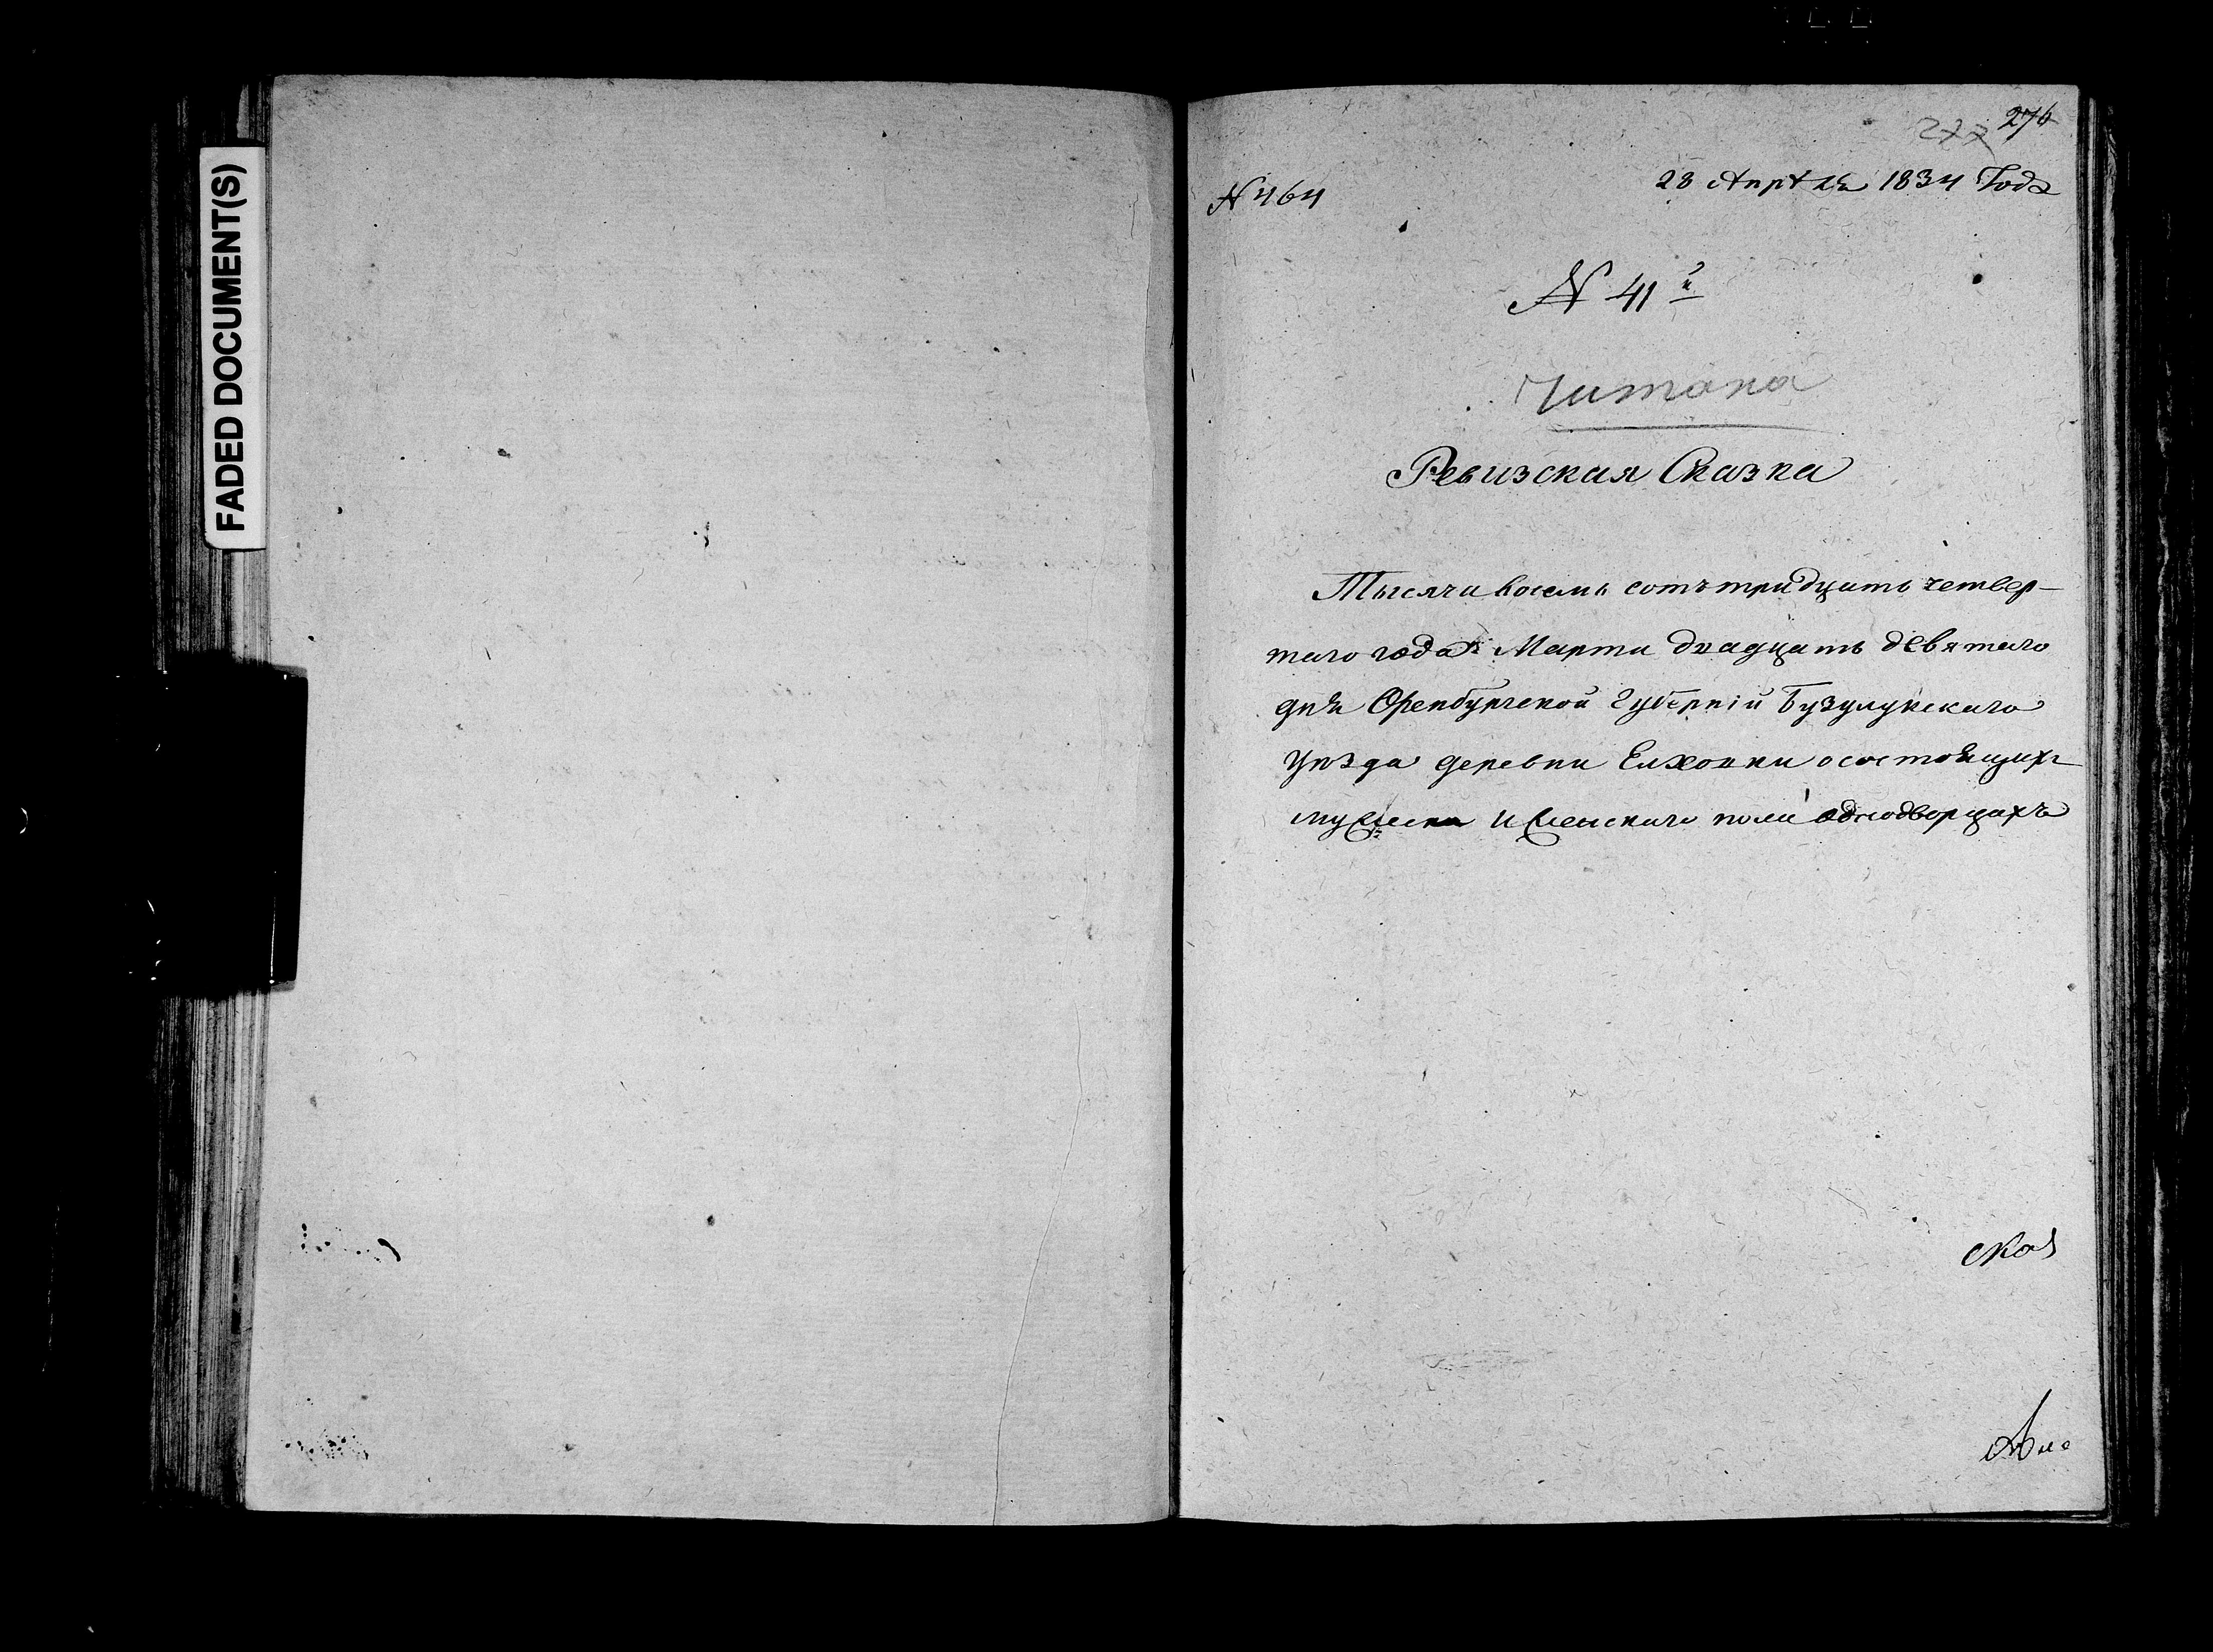 FADED DOCUMENT(S)
276
277
28 Апрѣля 1834 Года
N 464
N 41й
Читана
Ревизская Сказка
Тысяча восемь сотъ тридцать четвер-
таго года Марта двадцать девятаго
дня Оренбургской Губерніи Бузулукскаго
уѣзда деревни Елховки о состоящихъ
мужеска и женскаго пола однодворцахъ
Ска